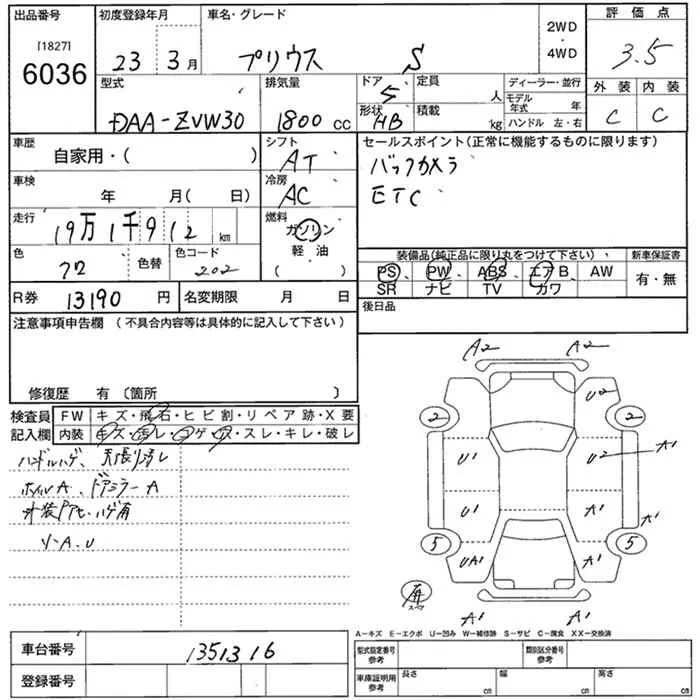 出品番号 初度登録年月 車名・グレード 評価点
[1827] 2WD
6036 23 3月 プリウス S 4WD 3.5
型式 排気量 ドア 5 定員 人 ディーラー・並行 外装 内装
DAA-ZVW30 1800 CC 形状 HB 積載 kg モデル年式 年 C C
ハンドル 左・右
車歴 自家用・( ) シフト AT セールスポイント(正常に機能するものに限ります)
バックカメラ
車検 年 月( 日) 冷房 AC ETC
走行 19万1千912 km 燃料 ガソリン
軽油
( )
色 色替 色コード 202 装備品(純正品に限り丸をつけて下さい) 新車保証書
PS、PW、ABS、エアB、AW 有・無
SR ナビ TV カワ
R券 13190 円 名変期限 月 日 後日品
注意事項申告欄 (不具合内容等は具体的に記入して下さい)
修復歴 有 〔箇所 〕
検査員 FW キズ・飛石・ヒビ割・リペア跡・X要
記入欄 内装 キズ・汚レ・コゲ・穴・スレ・キレ・破レ
ハンドルハゲ、天張り汚レ
ホイルA、ドアミラーA
A2 A2
U2
2 2
U1 U2 A1
U1 A1 A1
5 UA1 A1 5
スペア
A1 A1
A－キズ E－エクボ U－凹み W－補修跡 S－サビ C－腐食 XX－交換済
車台番号 1351316
登録番号
型式指定番号 参考 類別区分番号 参考
車庫証明用 参考 長さ cm 幅 cm 高さ cm